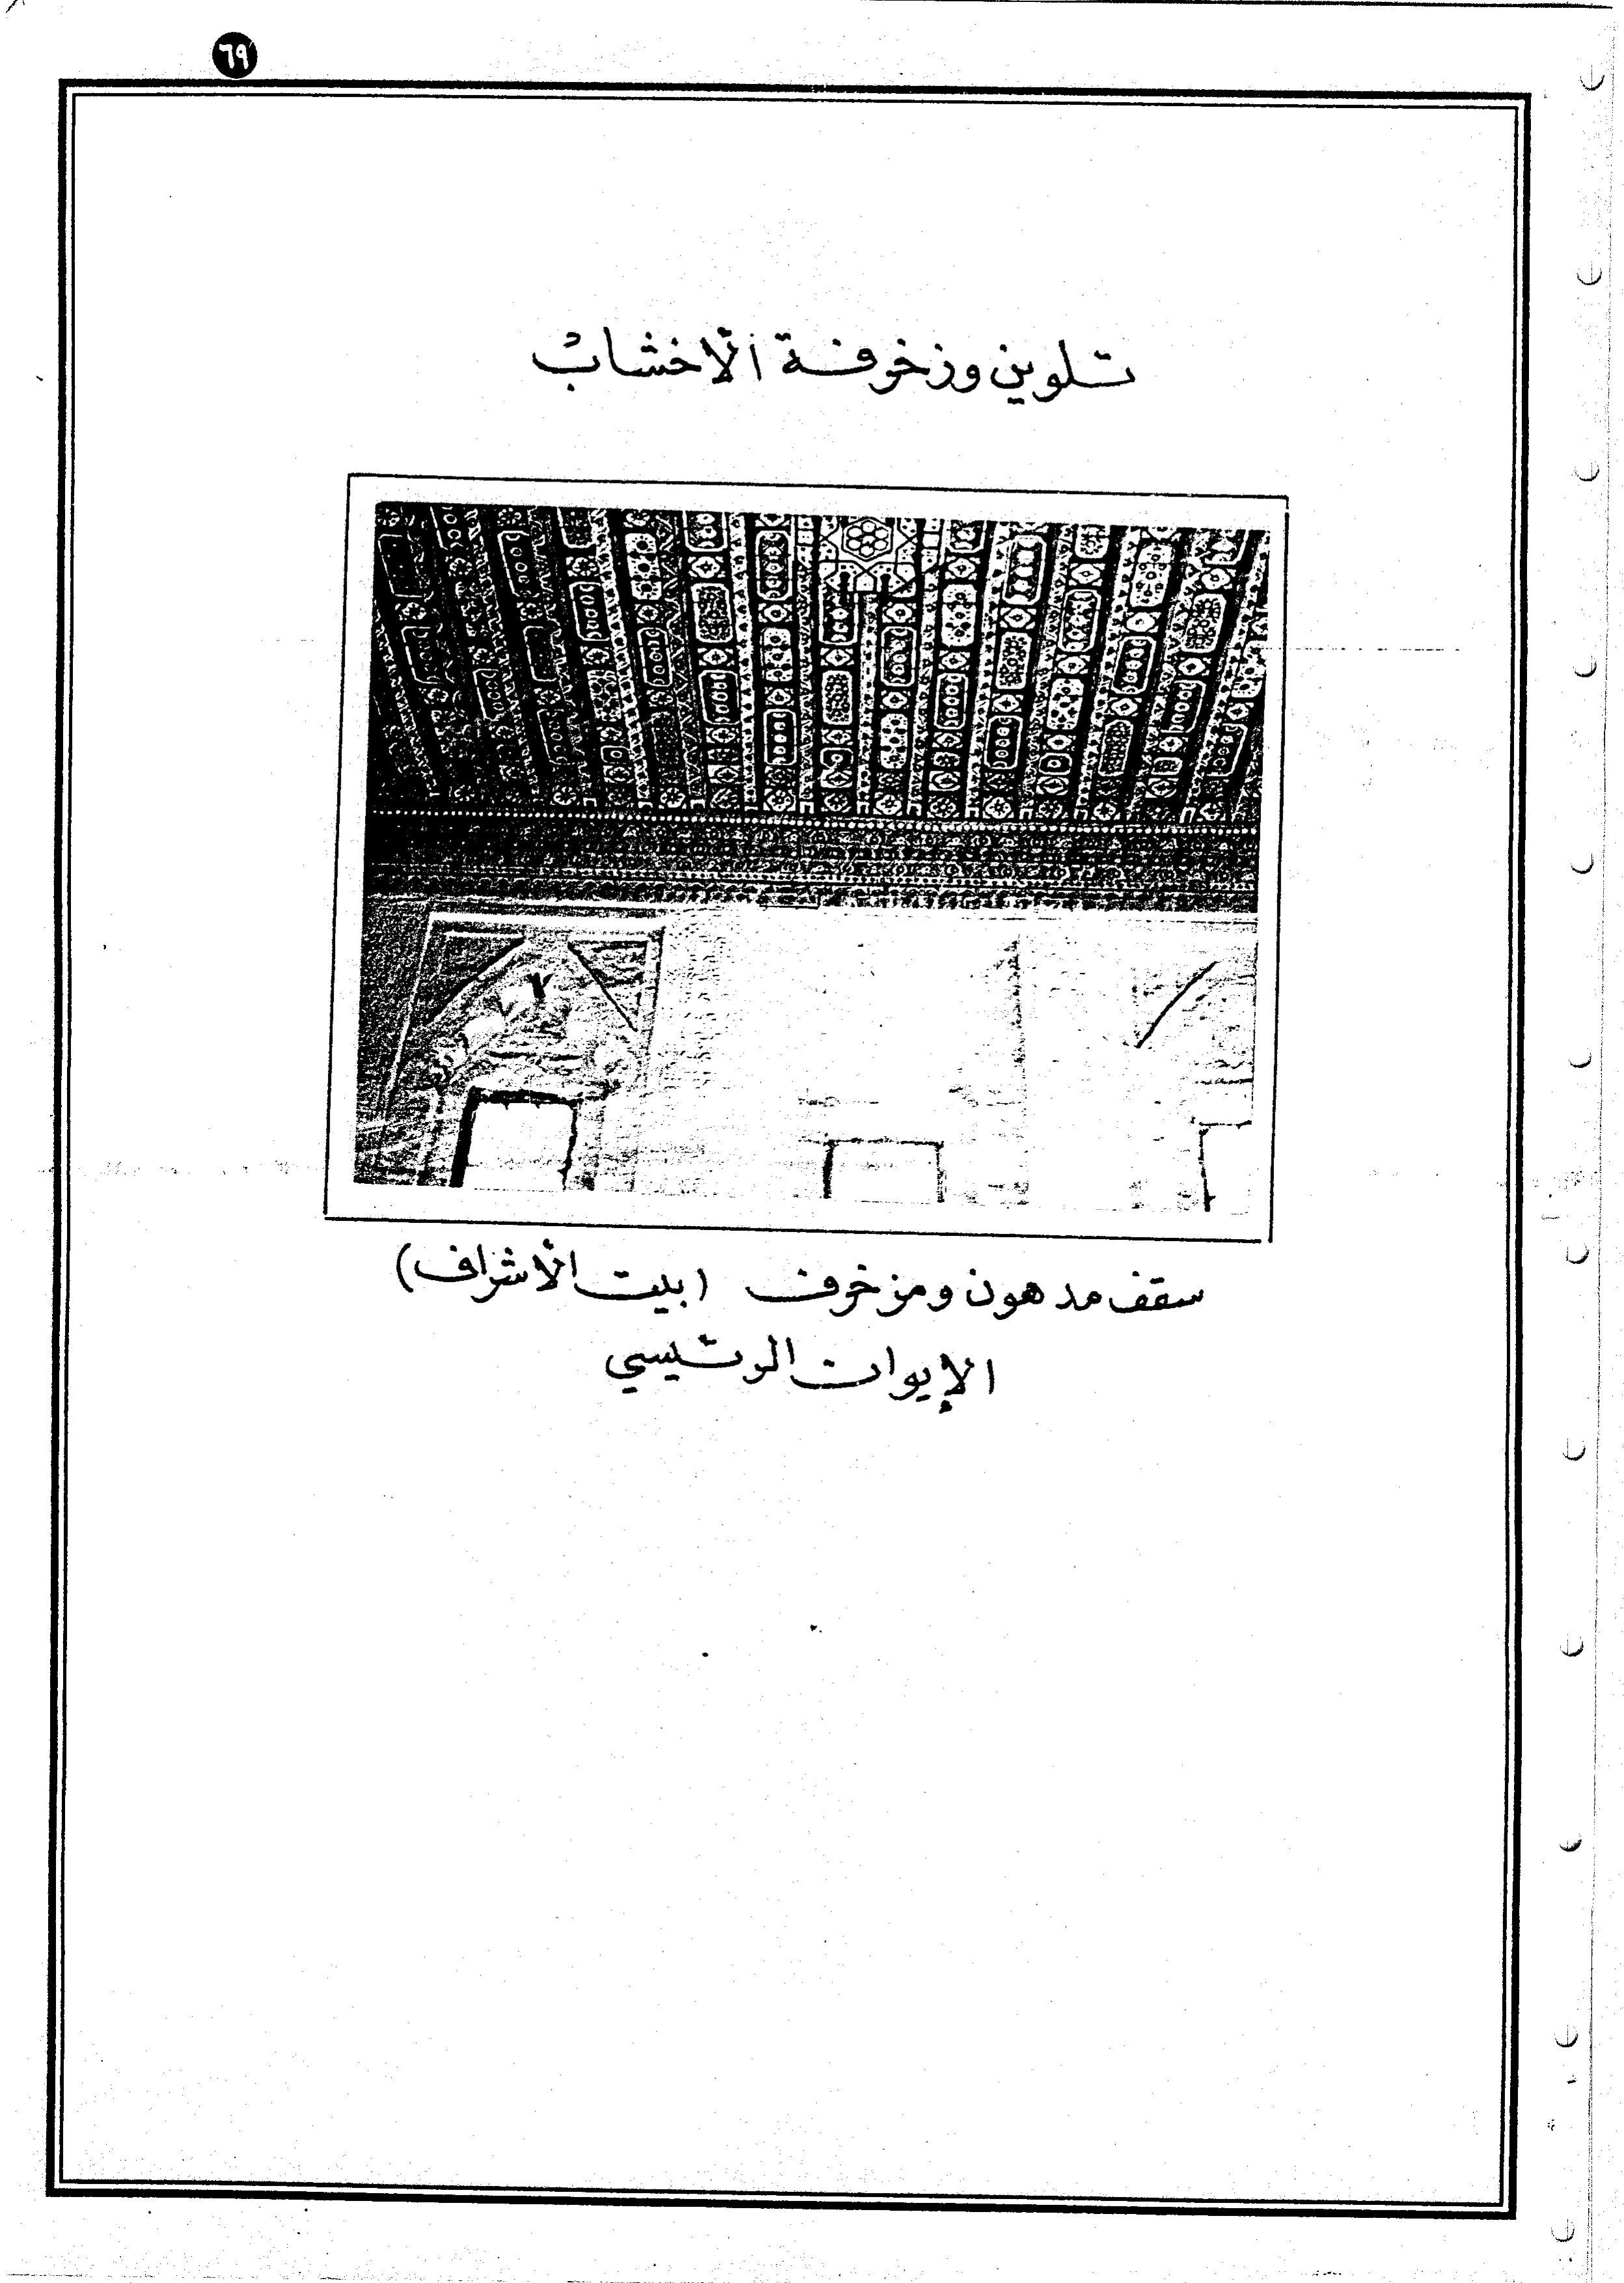 ٦٩
تلوين وزخرفة الأخشاب
سقف مدهون ومزخرف (بيت الأشراف)
الإيوان الرئيسي